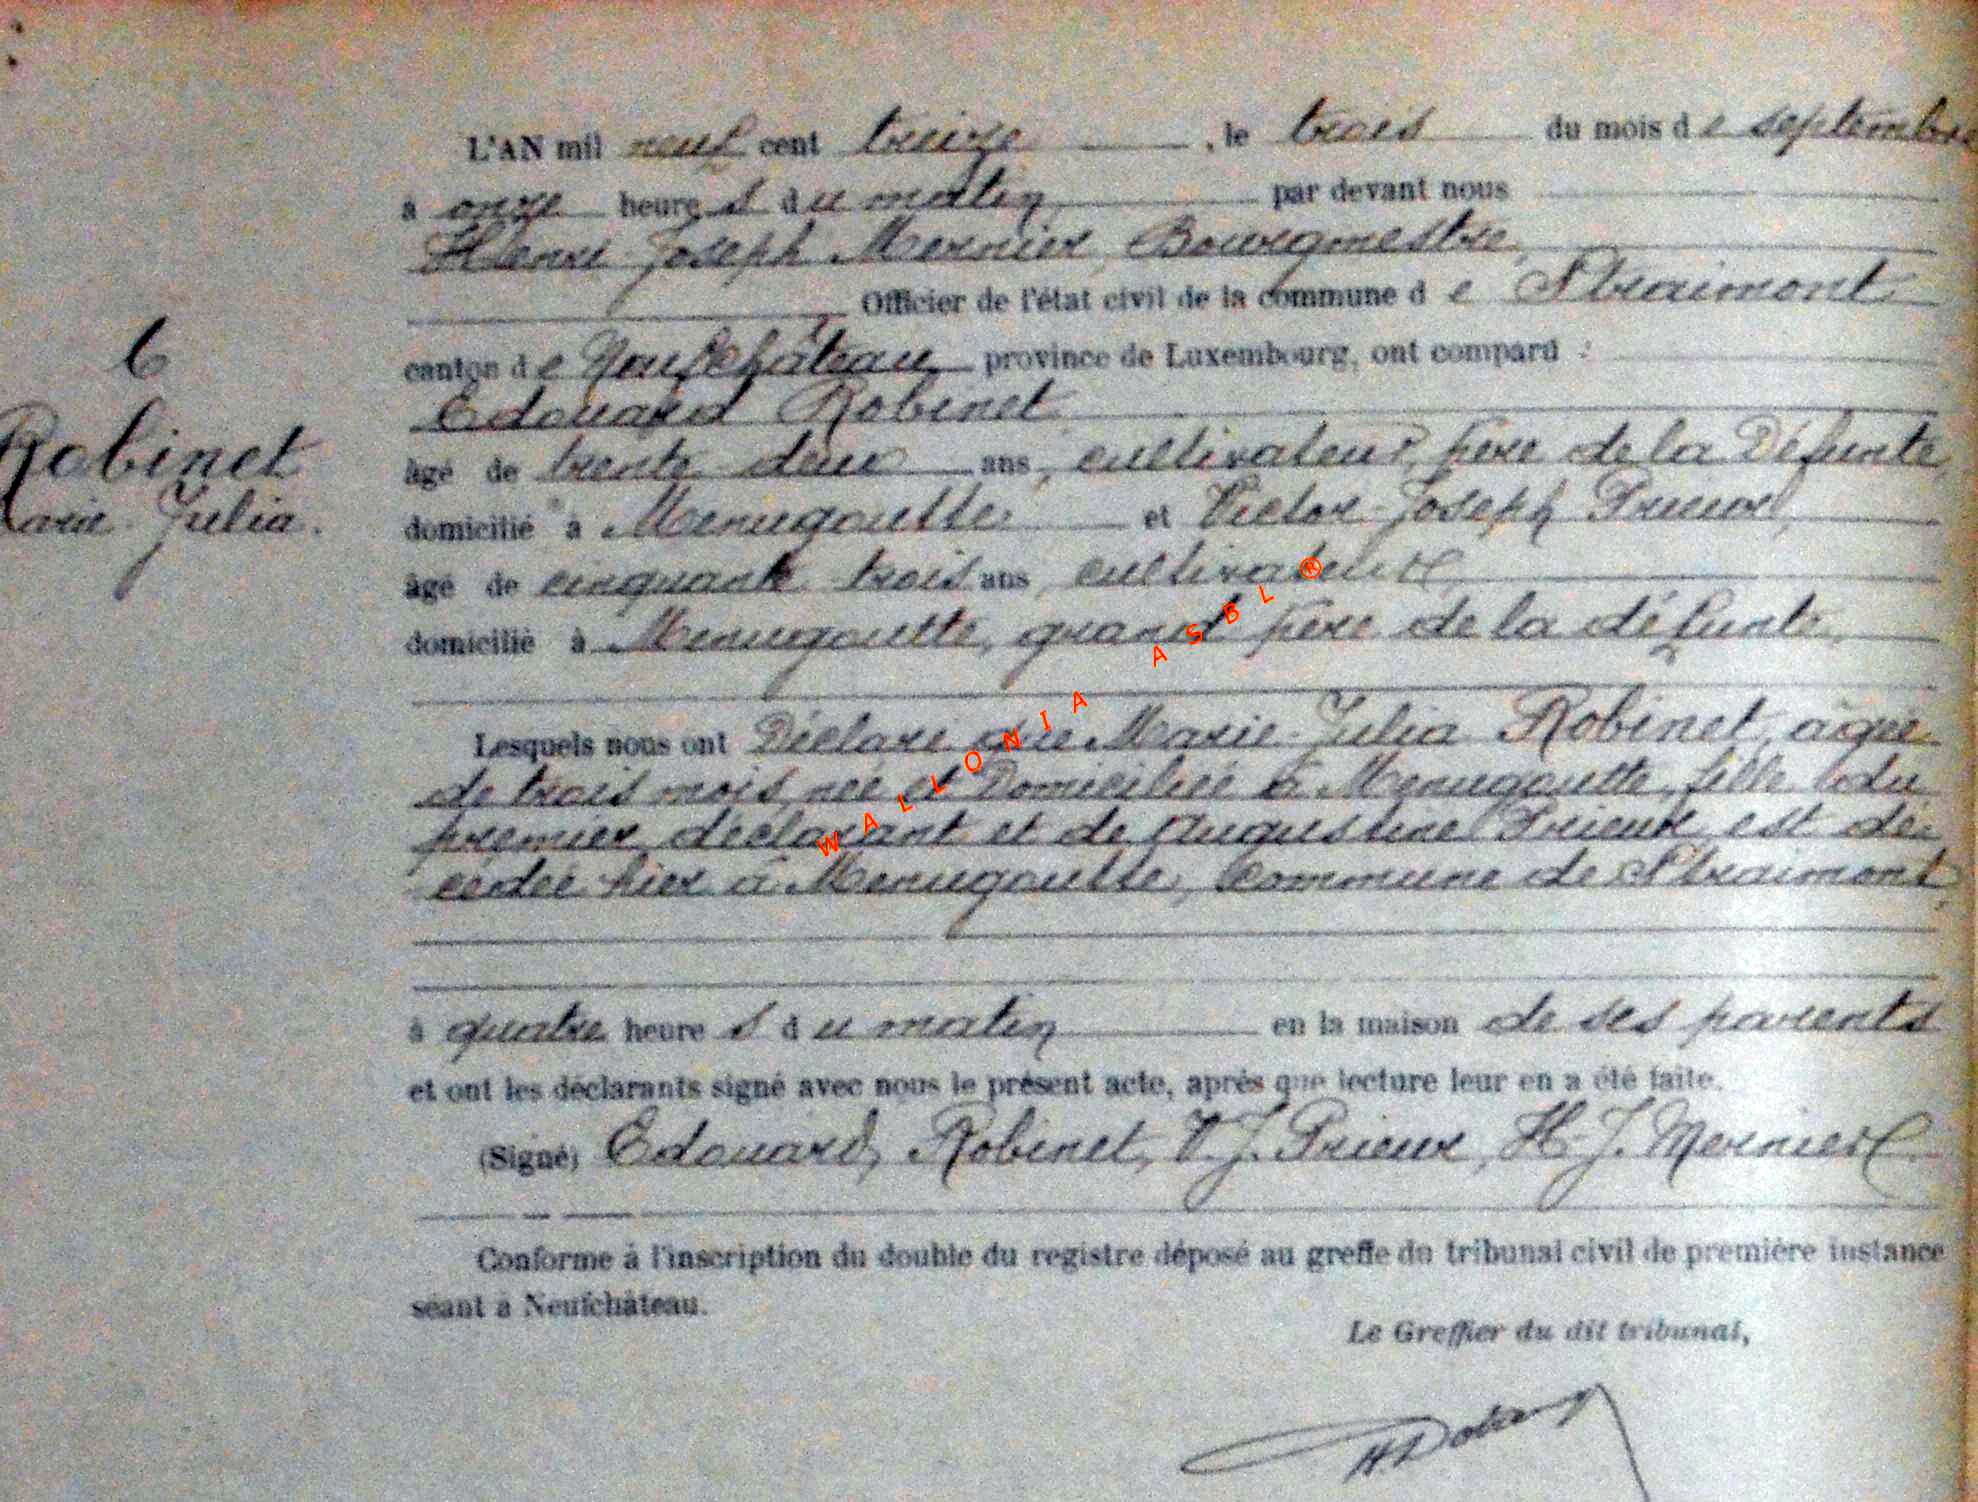 L'AN mil neuf cent treize , le trois du mois de septembre
à onze heures du matin par devant nous
Henri-Joseph Mernier, Bourgmestre,
Officier de l'état civil de la commune de Straimont,
canton de Neufchâteau province de Luxembourg, ont comparu :
6
Edouard Robinet
Robinet
âgé de trente deux ans, cultivateur, père de la Défunte,
Marie-Julia.
domicilié à Menugoutte et Victor-Joseph Prieur,
âgé de cinquante trois ans cultivateur
domicilié à Menugoutte, grand père de la défunte,
Lesquels nous ont Déclaré que Marie-Julia Robinet, âgée
de trois mois, née et Domiciliée à Menugoutte, fille du
premier déclarant et de Augustine Prieur est dé-
cédée hier à Menugoutte, commune de Straimont,
à quatre heures du matin en la maison de ses parents
et ont les déclarants signé avec nous le présent acte, après que lecture leur en a été faite.
(Signé) Edouard, Robinet, V. J. Prieur, H-J. Mernier.
Conforme à l'inscription du double du registre déposé au greffe du tribunal civil de première instance
séant à Neufchâteau.
Le Greffier du dit tribunal,
WALLONIA ASBL ®